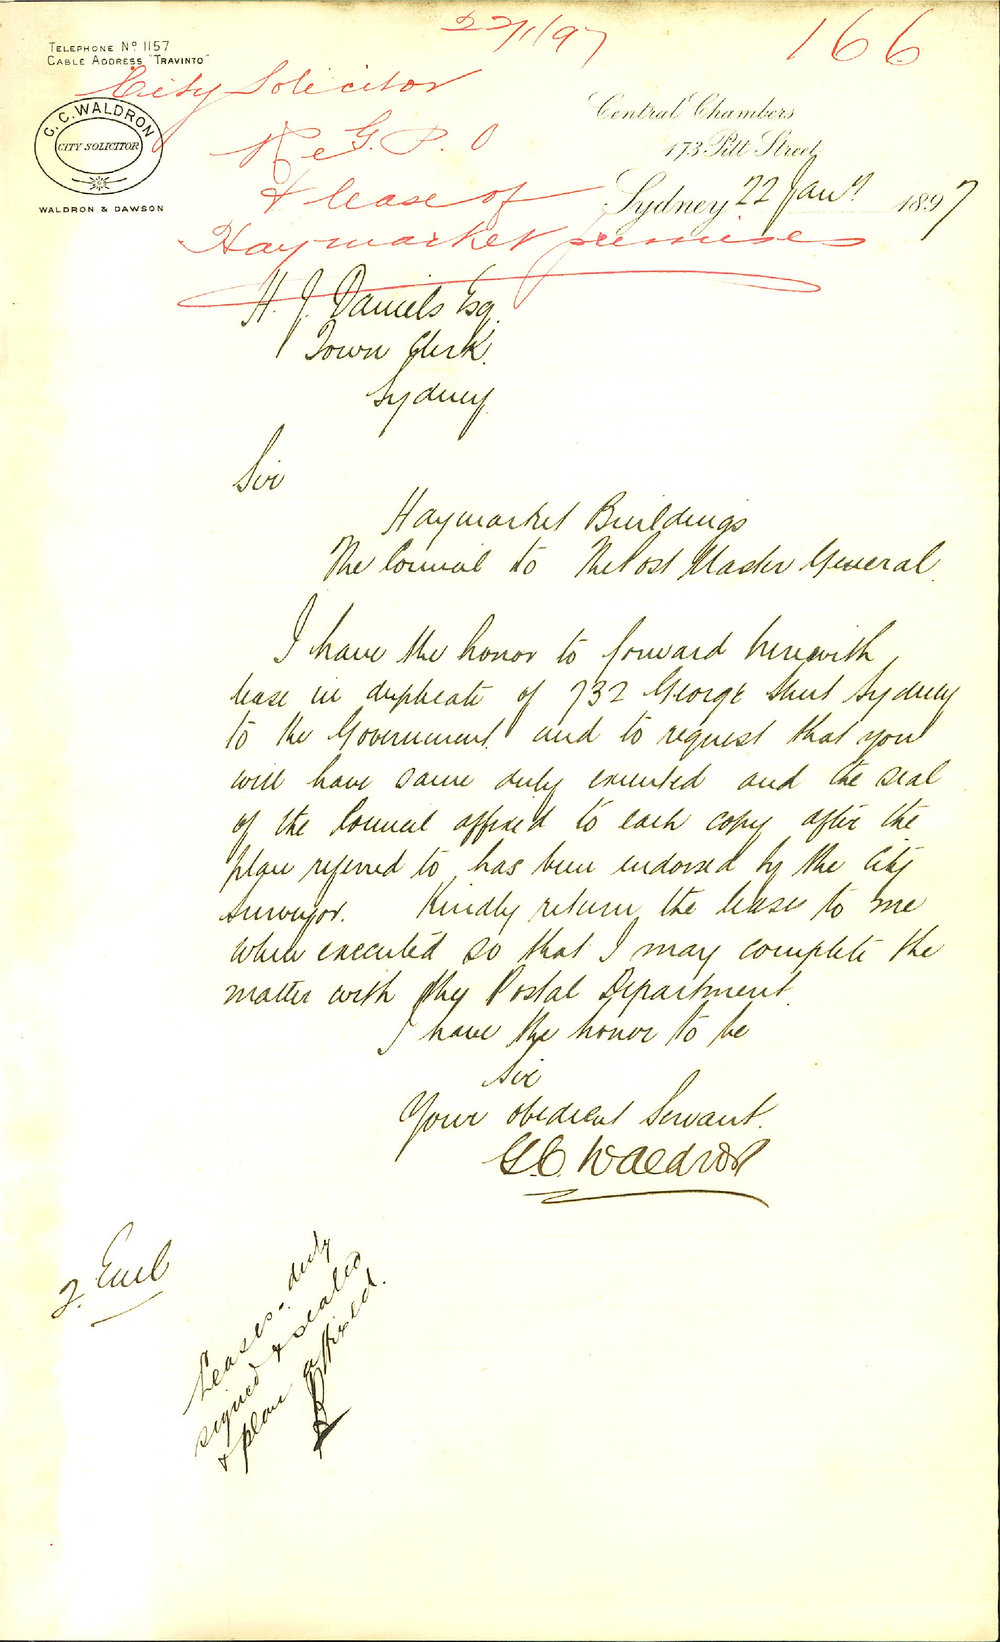 22/1/97
166
TELEPHONE No 1157
CABLE ADDRESS "TRAVINTO"
City Solicitor
Re G. P. O
& lease of
Haymarket premises
C. C. WALDRON
CITY SOLICITOR
WALDRON & DAWSON
Central Chambers
173 Pitt Street
Sydney 22 Jany 1897
H. J. Daniels Esq.
Town Clerk.
Sydney
Sir
Haymarket Buildings
The Council to The Post Master General.
I have the honor to forward herewith
lease in duplicate of 732 George Street Sydney
to the Government and to request that you
will have same duly executed and the seal
of the Council affixed to each copy after the
plan referred to has been endorsed by the City
Surveyor. Kindly return the leases to me
when executed so that I may complete the
matter with the Postal Department.
I have the honor to be
Sir
Your obedient Servant.
C. Waldron
2. Encl
Leases duly
signed & sealed
& plan affixed.